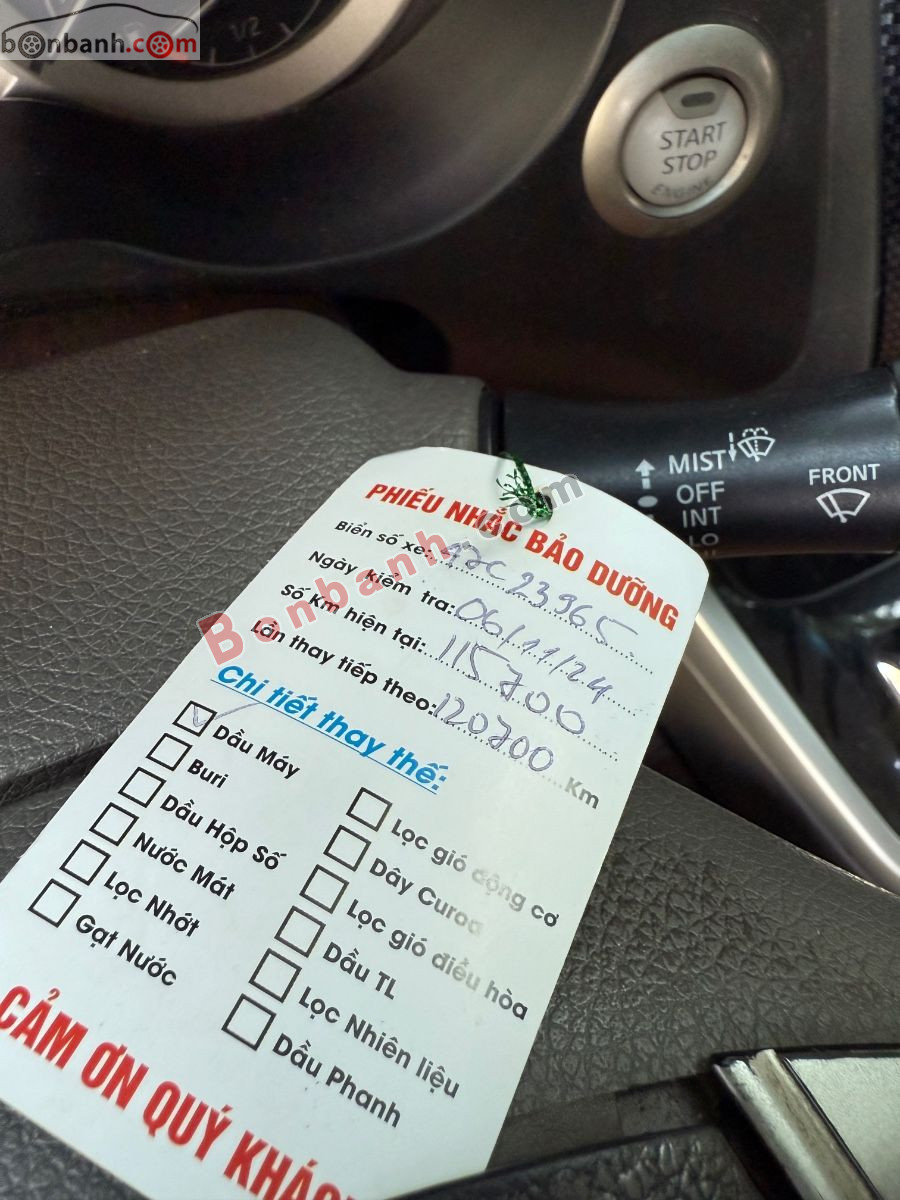 bonbanh.com
1/2
START
STOP
ENGINE
MIST
OFF
INT
LO
FRONT
PHIẾU NHẮC BẢO DƯỠNG
Biển số xe: 47C 23965
Ngày kiểm tra: 06/11/24
Số Km hiện tại: 115700
Lần thay tiếp theo: 120700 Km
Bonbanh.com
Chi tiết thay thế:
Dầu Máy
Buri
Dầu Hộp Số
Nước Mát
Lọc Nhớt
Gạt Nước
Lọc gió động cơ
Dây Curoa
Lọc gió điều hòa
Dầu TL
Lọc Nhiên liệu
Dầu Phanh
CẢM ƠN QUÝ KHÁC